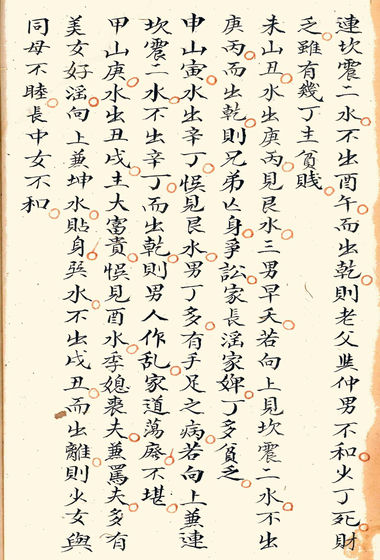 連坎震二水不出酉午而出乾則老父與仲男不和少丁死財
乏雖有幾丁主貧賤
未山丑水出庚丙見艮水三男早夭若向上見坎震二水不出
庚丙而出乾則兄弟亡身爭訟家長淫家婢丁多貧乏
申山寅水出辛丁悞見艮水男丁多有手足之病若向上兼連
坎震二水不出辛丁而出乾則男人作乱家道蕩廢不堪
甲山庚水出丑戌主大富貴悞見酉水季媳喪夫兼罵夫多有
美女好淫向上兼坤水貼身巽水不出戌丑而出離則少女與
同母不睦長中女不和